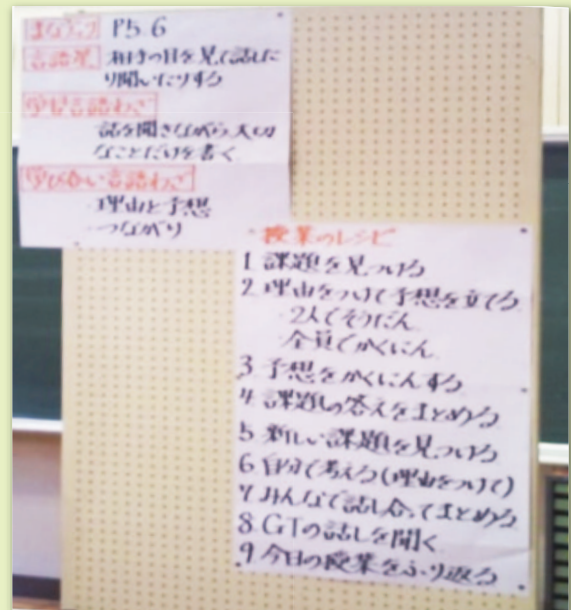 まなブック P5.6
言語星 相手の目を見て話した
り聞いたりする
学習言語わざ
話を聞きながら、大切
なことだけを書く
学び合い言語わざ
・理由と予想
・つながり
・授業のレシピ
1 課題を見つける
2 理由をつけて予想を立てる
・2人でそうだん
・全員でかくにん
3 予想をかくにんする
4 課題の答えをまとめる
5 新しい課題を見つける
6 自分で考える(理由をつけて)
7 みんなで話し合ってまとめる
8 GTの話しを聞く
9 今日の授業をふり返る